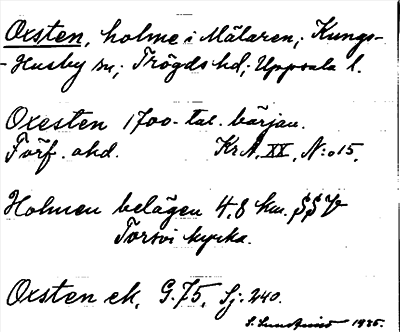 Oxsten, holme i Mälaren; Kungs-
-Husby sn; Trögds hd; Uppsala l.
Oxesten 1700-tal. början.
Förf. ohd. Kr.A. XX, N:o 15.
Holmen belägen 4,8 km. SSV
Torsvi kyrka.
Oxsten ek. G. 75, Sj: 240.
1935.